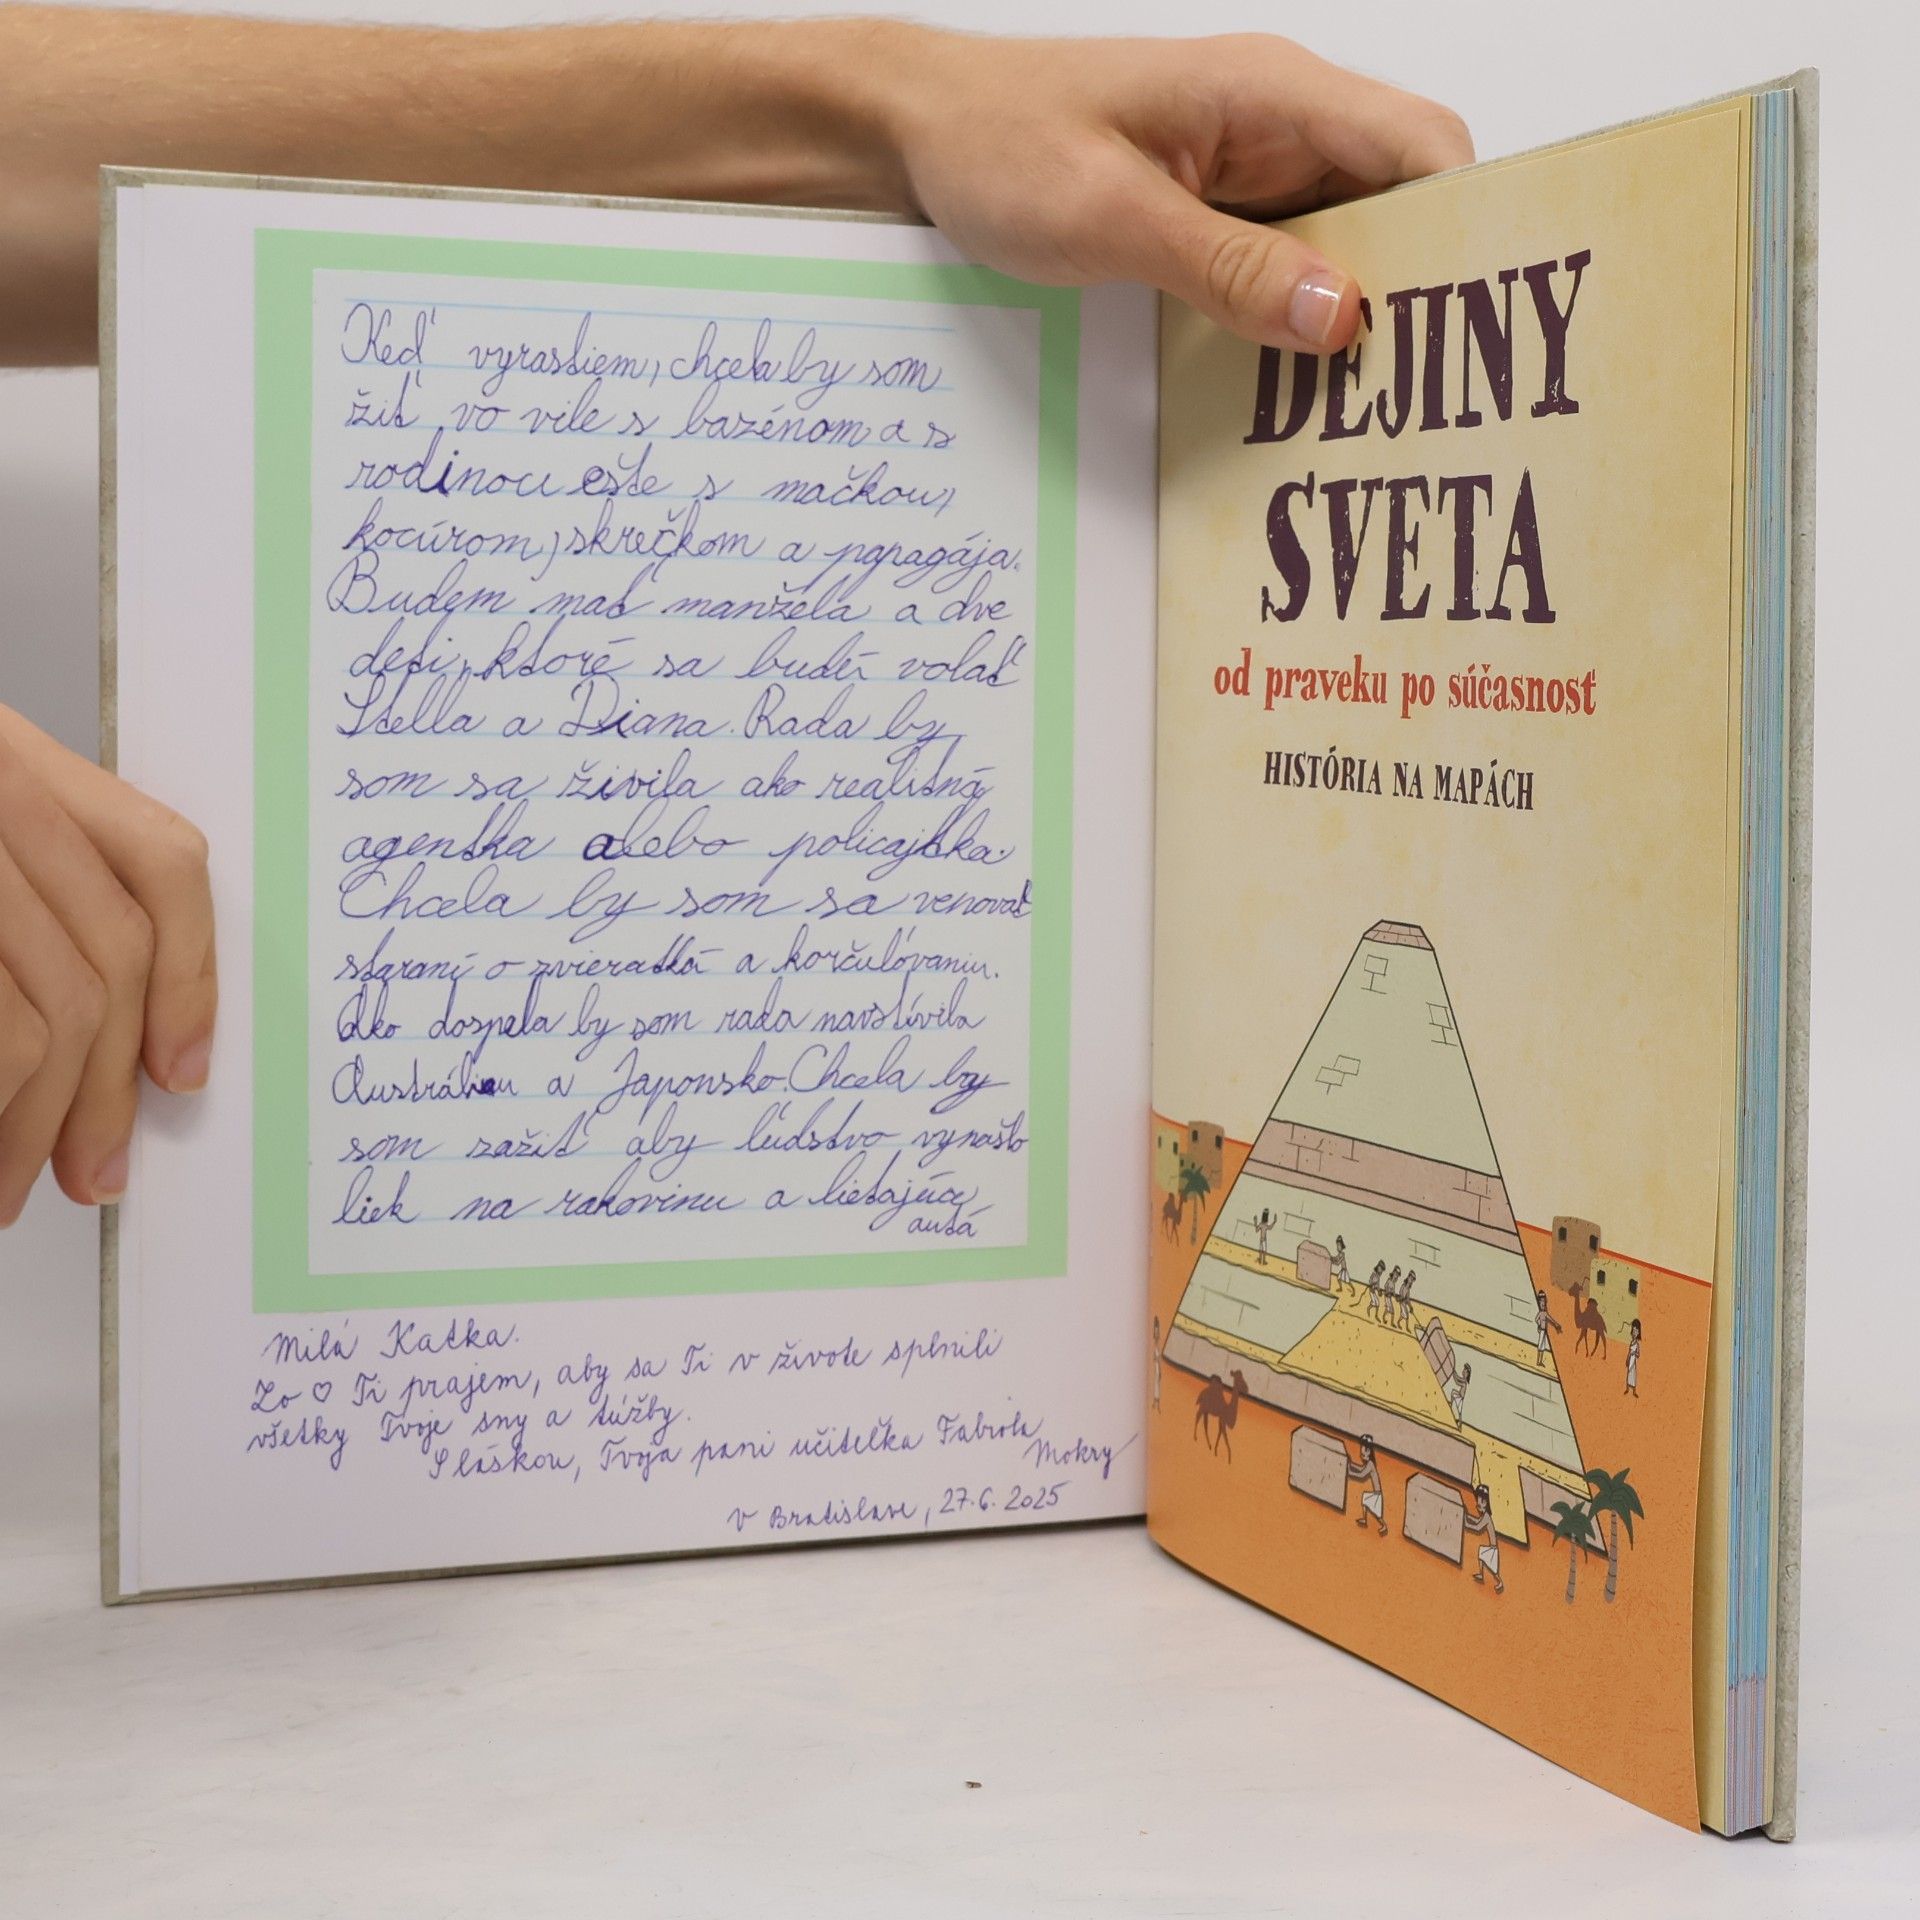 Keď vyrastiem, chcela by som
žiť vo vile s bazénom a s
rodinou ešte s mačkou,
kocúrom, skrečkom a papagája.
Budem mať manžela a dve
deti, ktoré sa budú volať
Stella a Diana. Rada by
som sa živila ako realitná
agentka alebo policajtka.
Chcela by som sa venovať
staraní o zvieratká a korčuľovaniu.
Ako dospela by som rada navstívila
Austráliou a Japonsko. Chcela by
som zažiť aby ľudstvo vynašlo
liek na rakovinu a lietajúce
autá
Milá Katka.
Zo ♡ Ti prajem, aby sa Ti v živote splnili
všetky Tvoje sny a túžby.
S láskou, Tvoja pani učiteľka Fabiola
Mokry
v Bratislave, 27.6. 2025
DEJINY
SVETA
od praveku po súčasnosť
HISTÓRIA NA MAPÁCH